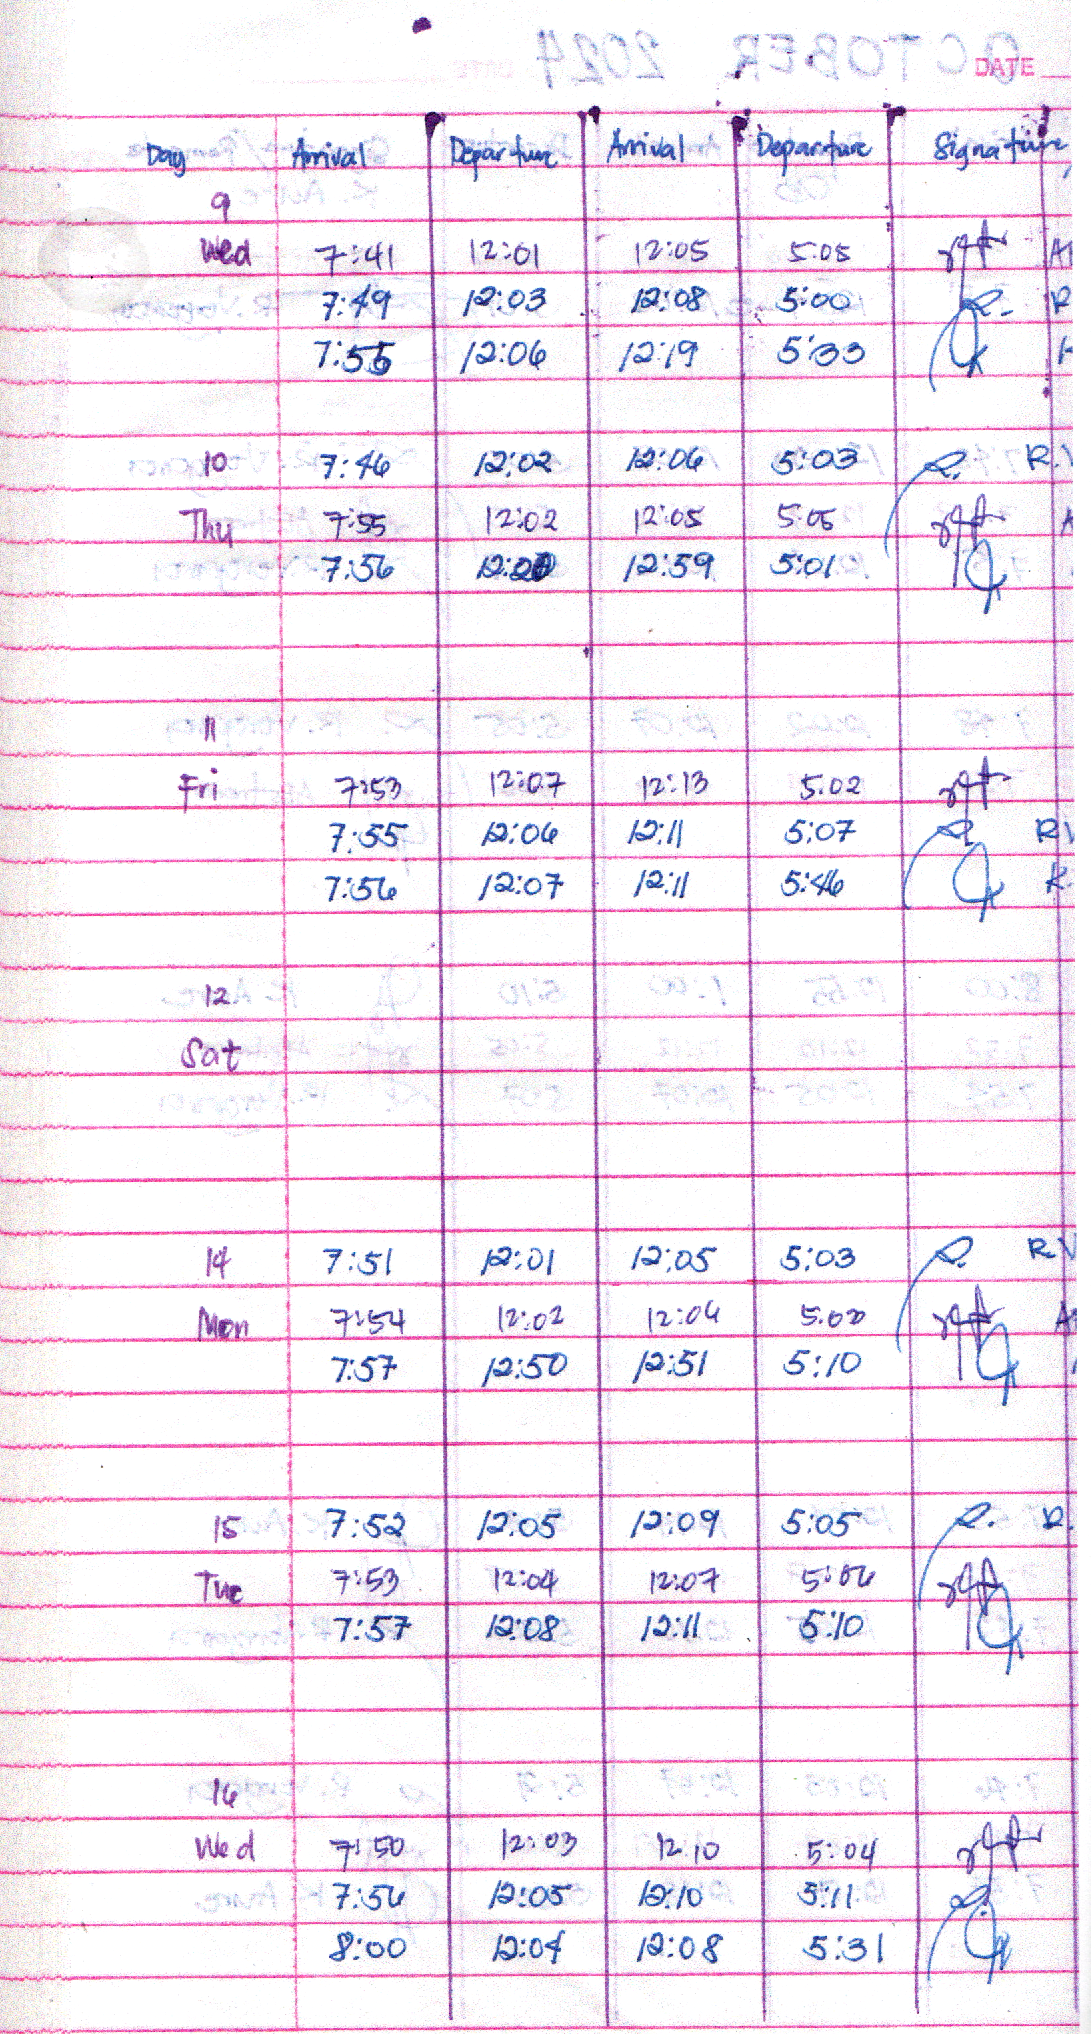 DATE
Day Arrival Departure Arrival Departure Signature
9
Wed 7:41 12:01 12:05 5:05
7:49 12:03 12:08 5:00 R
7:55 12:06 12:19 5:33
10 7:46 12:02 12:06 5:03 R.V
Thu 7:55 12:02 12:05 5:05
7:56 12:59 5:01
11
Fri 7:53 12:07 12:13 5:02
7:55 12:06 12:11 5:07 RV
7:56 12:07 12:11 5:46 K.
12
Sat
14 7:51 12:01 12:05 5:03 RV
Mon 7:54 12:02 12:06 5:00 A
7:57 12:50 12:51 5:10
15 7:52 12:05 12:09 5:05 R.
Tue 7:53 12:04 12:07 5:06
7:57 12:08 12:11 5:10
16
Wed 7:50 12:03 12:10 5:04
7:56 12:05 12:10 5:11
8:00 12:04 12:08 5:31